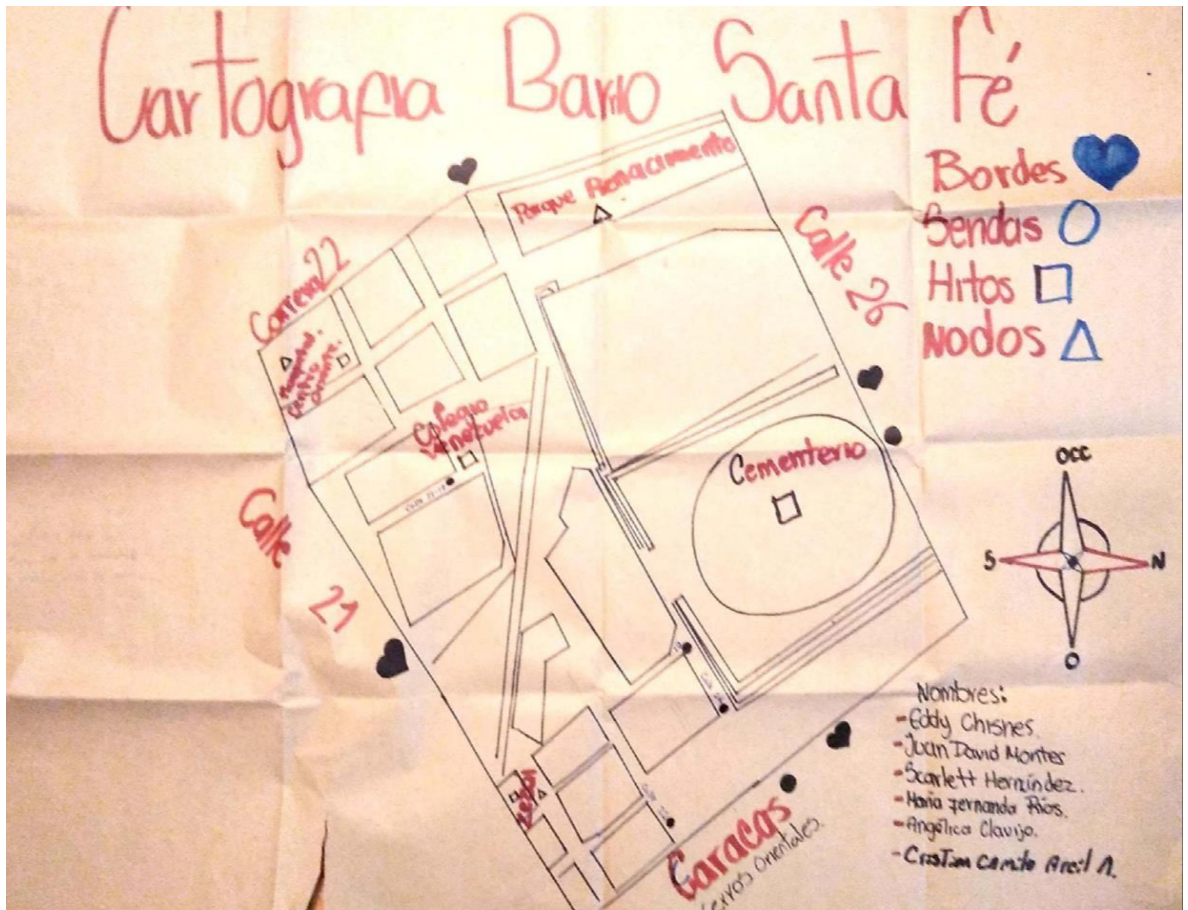 Cartografia Barrio Santa Fé
Bordes
Sendas
Hitos
Nodos
Parque Renacimiento
Calle 26
Carrera 22
Centro
Colegio
Venezuela
Cementerio
Calle
21
OCC
S
N
O
Caracas
Cerros Orientales.
Nombres:
-Eddy Chisnes.
-Juan David Montes
-Scarlett Hernández.
-Maria Fernanda Rios.
-Angélica Clavijo.
-Cristian Camilo